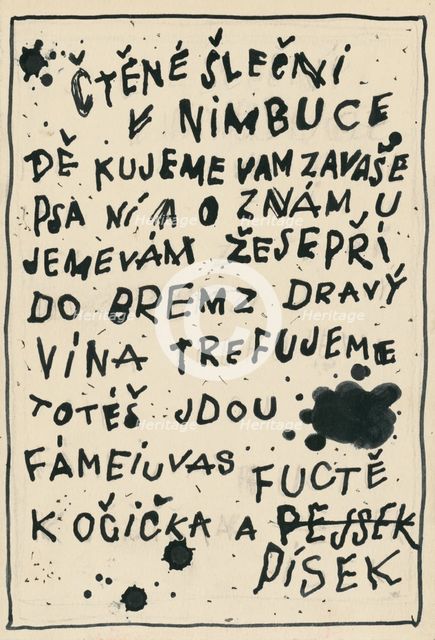 ČTĚNÉ ŠLEČNI
V NIMBUCE
DĚ KUJEME VAM ZAVAŠE
PSA NÍ A O ZNÁM JU
JEMEVÁM ŽESEPŘI
DO BREMZ DRAVÝ
VÍNA TREFUJEME
TOTÉŠ JDOU
FÁMEIUVAS
FUCTĚ
KOČIČKA A PEJSEK
PÍSEK